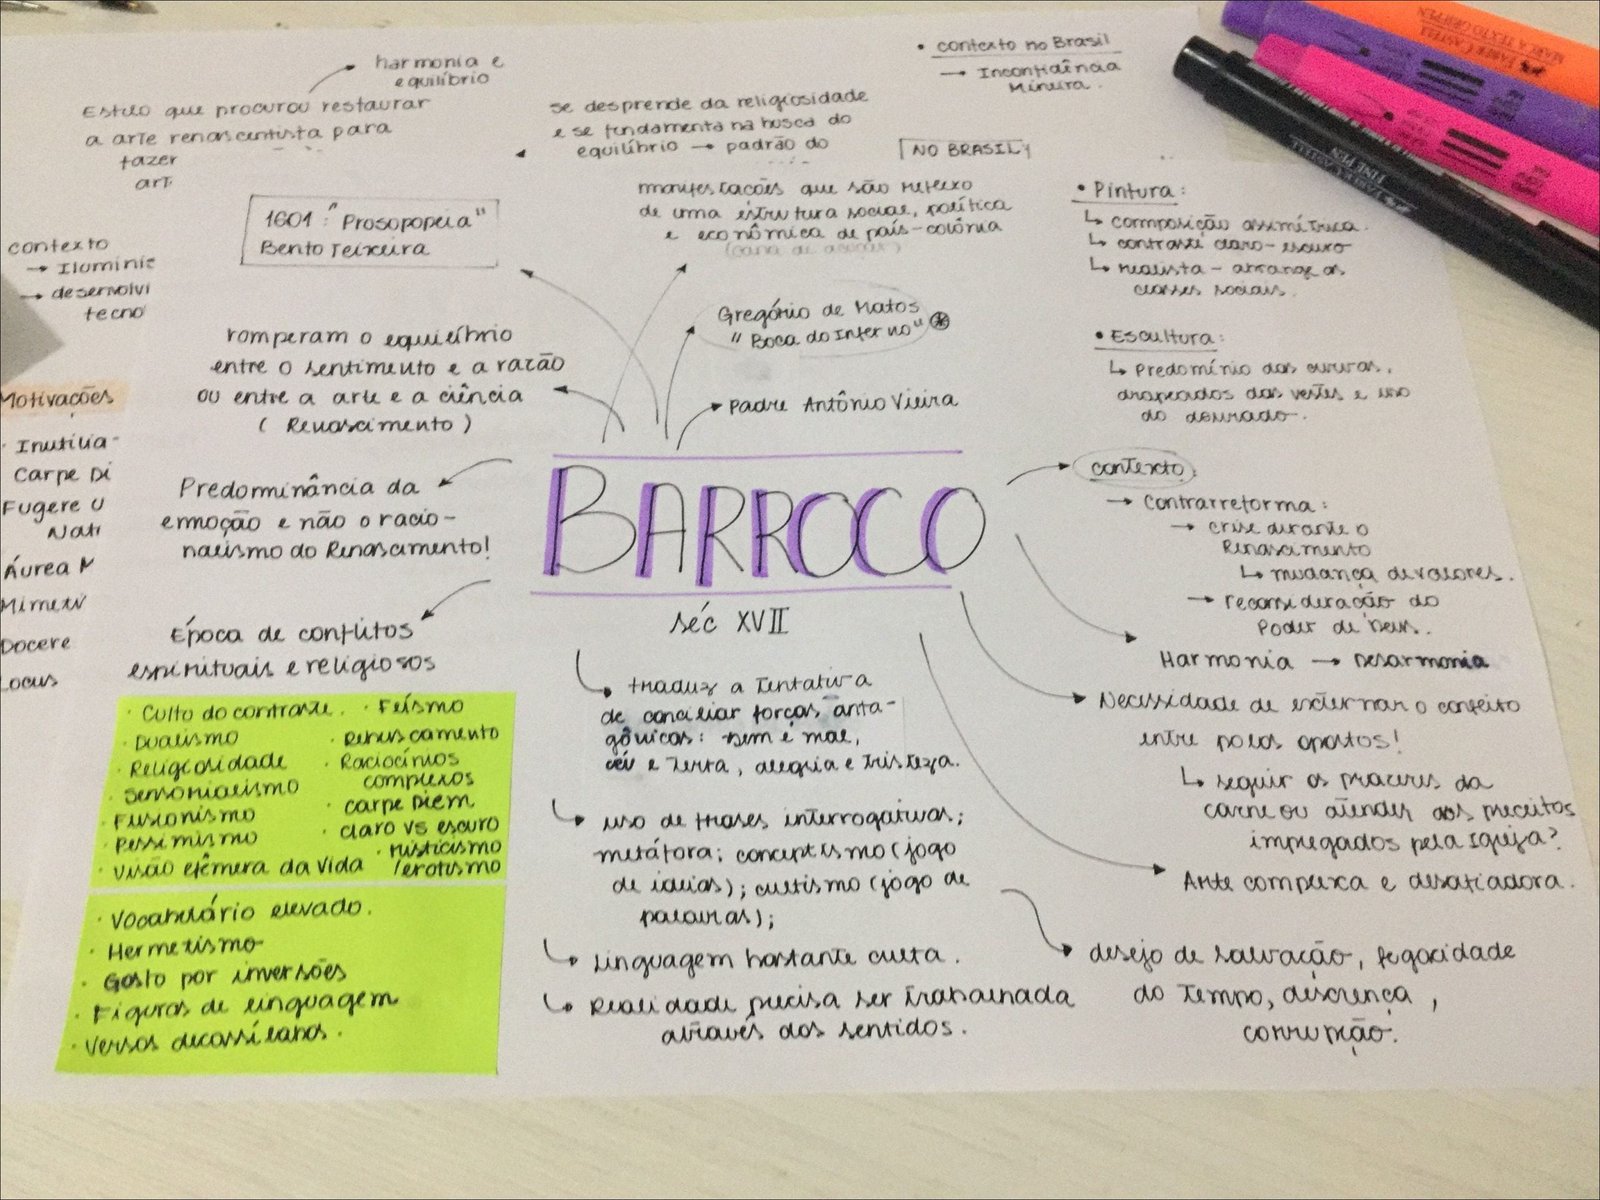 harmonia e
equilíbrio
Estilo que procurou restaurar
a arte renascentista para
fazer
art
se desprende da religiosidade
e se fundamenta na busca do
equilíbrio → padrão do
• contexto no Brasil
→ Inconfidência
Mineira.
NO BRASIL
contexto
→ Iluminis
→ desenvolvi
tecno
Motivações
· Inutilia
Carpe Di
Fugere U
Nati
Áurea M
Mimetiv
Docere
Locus
1601: "Prosopopeia"
Bento Teixeira
manifestações que são reflexo
de uma estrutura social, política
e econômica de país-colônia
(cana de açúcar)
Gregório de Matos
"Boca do Inferno" *
Padre Antônio Vieira
romperam o equilíbrio
entre o sentimento e a razão
ou entre a arte e a ciência
(Renascimento)
Predominância da
emoção e não o racio-
nalismo do Renascimento!
Época de conflitos
espirituais e religiosos
BARROCO
séc XVII
• Pintura:
↳ composição assimétrica.
↳ contraste claro-escuro
↳ realista - abrange as
classes sociais.
• Escultura:
↳ Predomínio das curvas,
drapeados das vestes e uso
do dourado.
contexto
→ Contrarreforma:
→ crise durante o
Renascimento
↳ mudança de valores.
→ reconsideração do
Poder de Deus.
Harmonia → Desarmonia
Necessidade de externar o conflito
entre polos opostos!
↳ seguir os prazeres da
carne ou atender aos preceitos
impregados pela Igreja?
Arte complexa e desafiadora.
desejo de salvação, fugacidade
do tempo, descrença,
corrupção.
traduz a tentativa
de conciliar forças anta-
gônicas: bem e mal,
céu e Terra, alegria e tristeza.
uso de frases interrogativas;
metáfora; conceptismo (jogo
de ideias); cultismo (jogo de
palavras);
Linguagem bastante culta.
Realidade precisa ser trabalhada
através dos sentidos.
· Culto do contraste.
· Dualismo
· Religiosidade
· Sensorialismo
· Fusionismo
· Pessimismo
· Visão efêmera da vida
· Feísmo
· Rebuscamento
· Raciocínios
complexos
· Carpe Diem
· claro vs escuro
· misticismo
/erotismo
· Vocabulário elevado.
· Hermetismo
· Gosto por inversões
· Figuras de linguagem
· Versos decassílabos.
FINE PEN